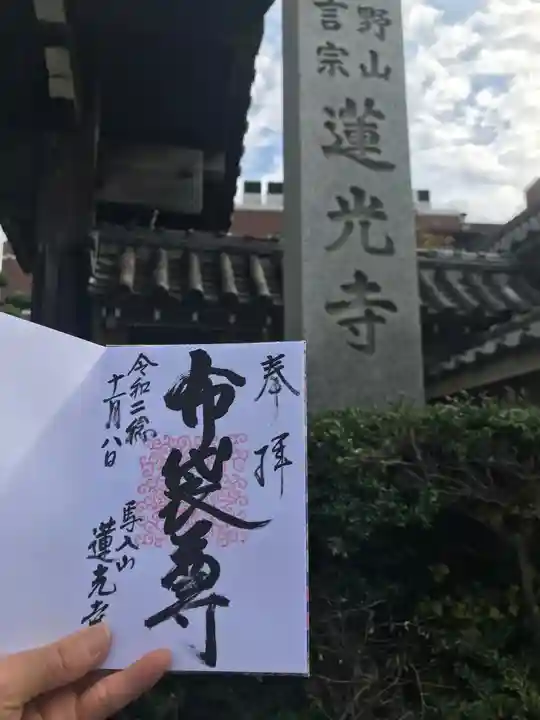 野山
言宗
蓮光寺
奉拝
布袋尊
令和二年
十一月八日
馬入山
蓮光寺